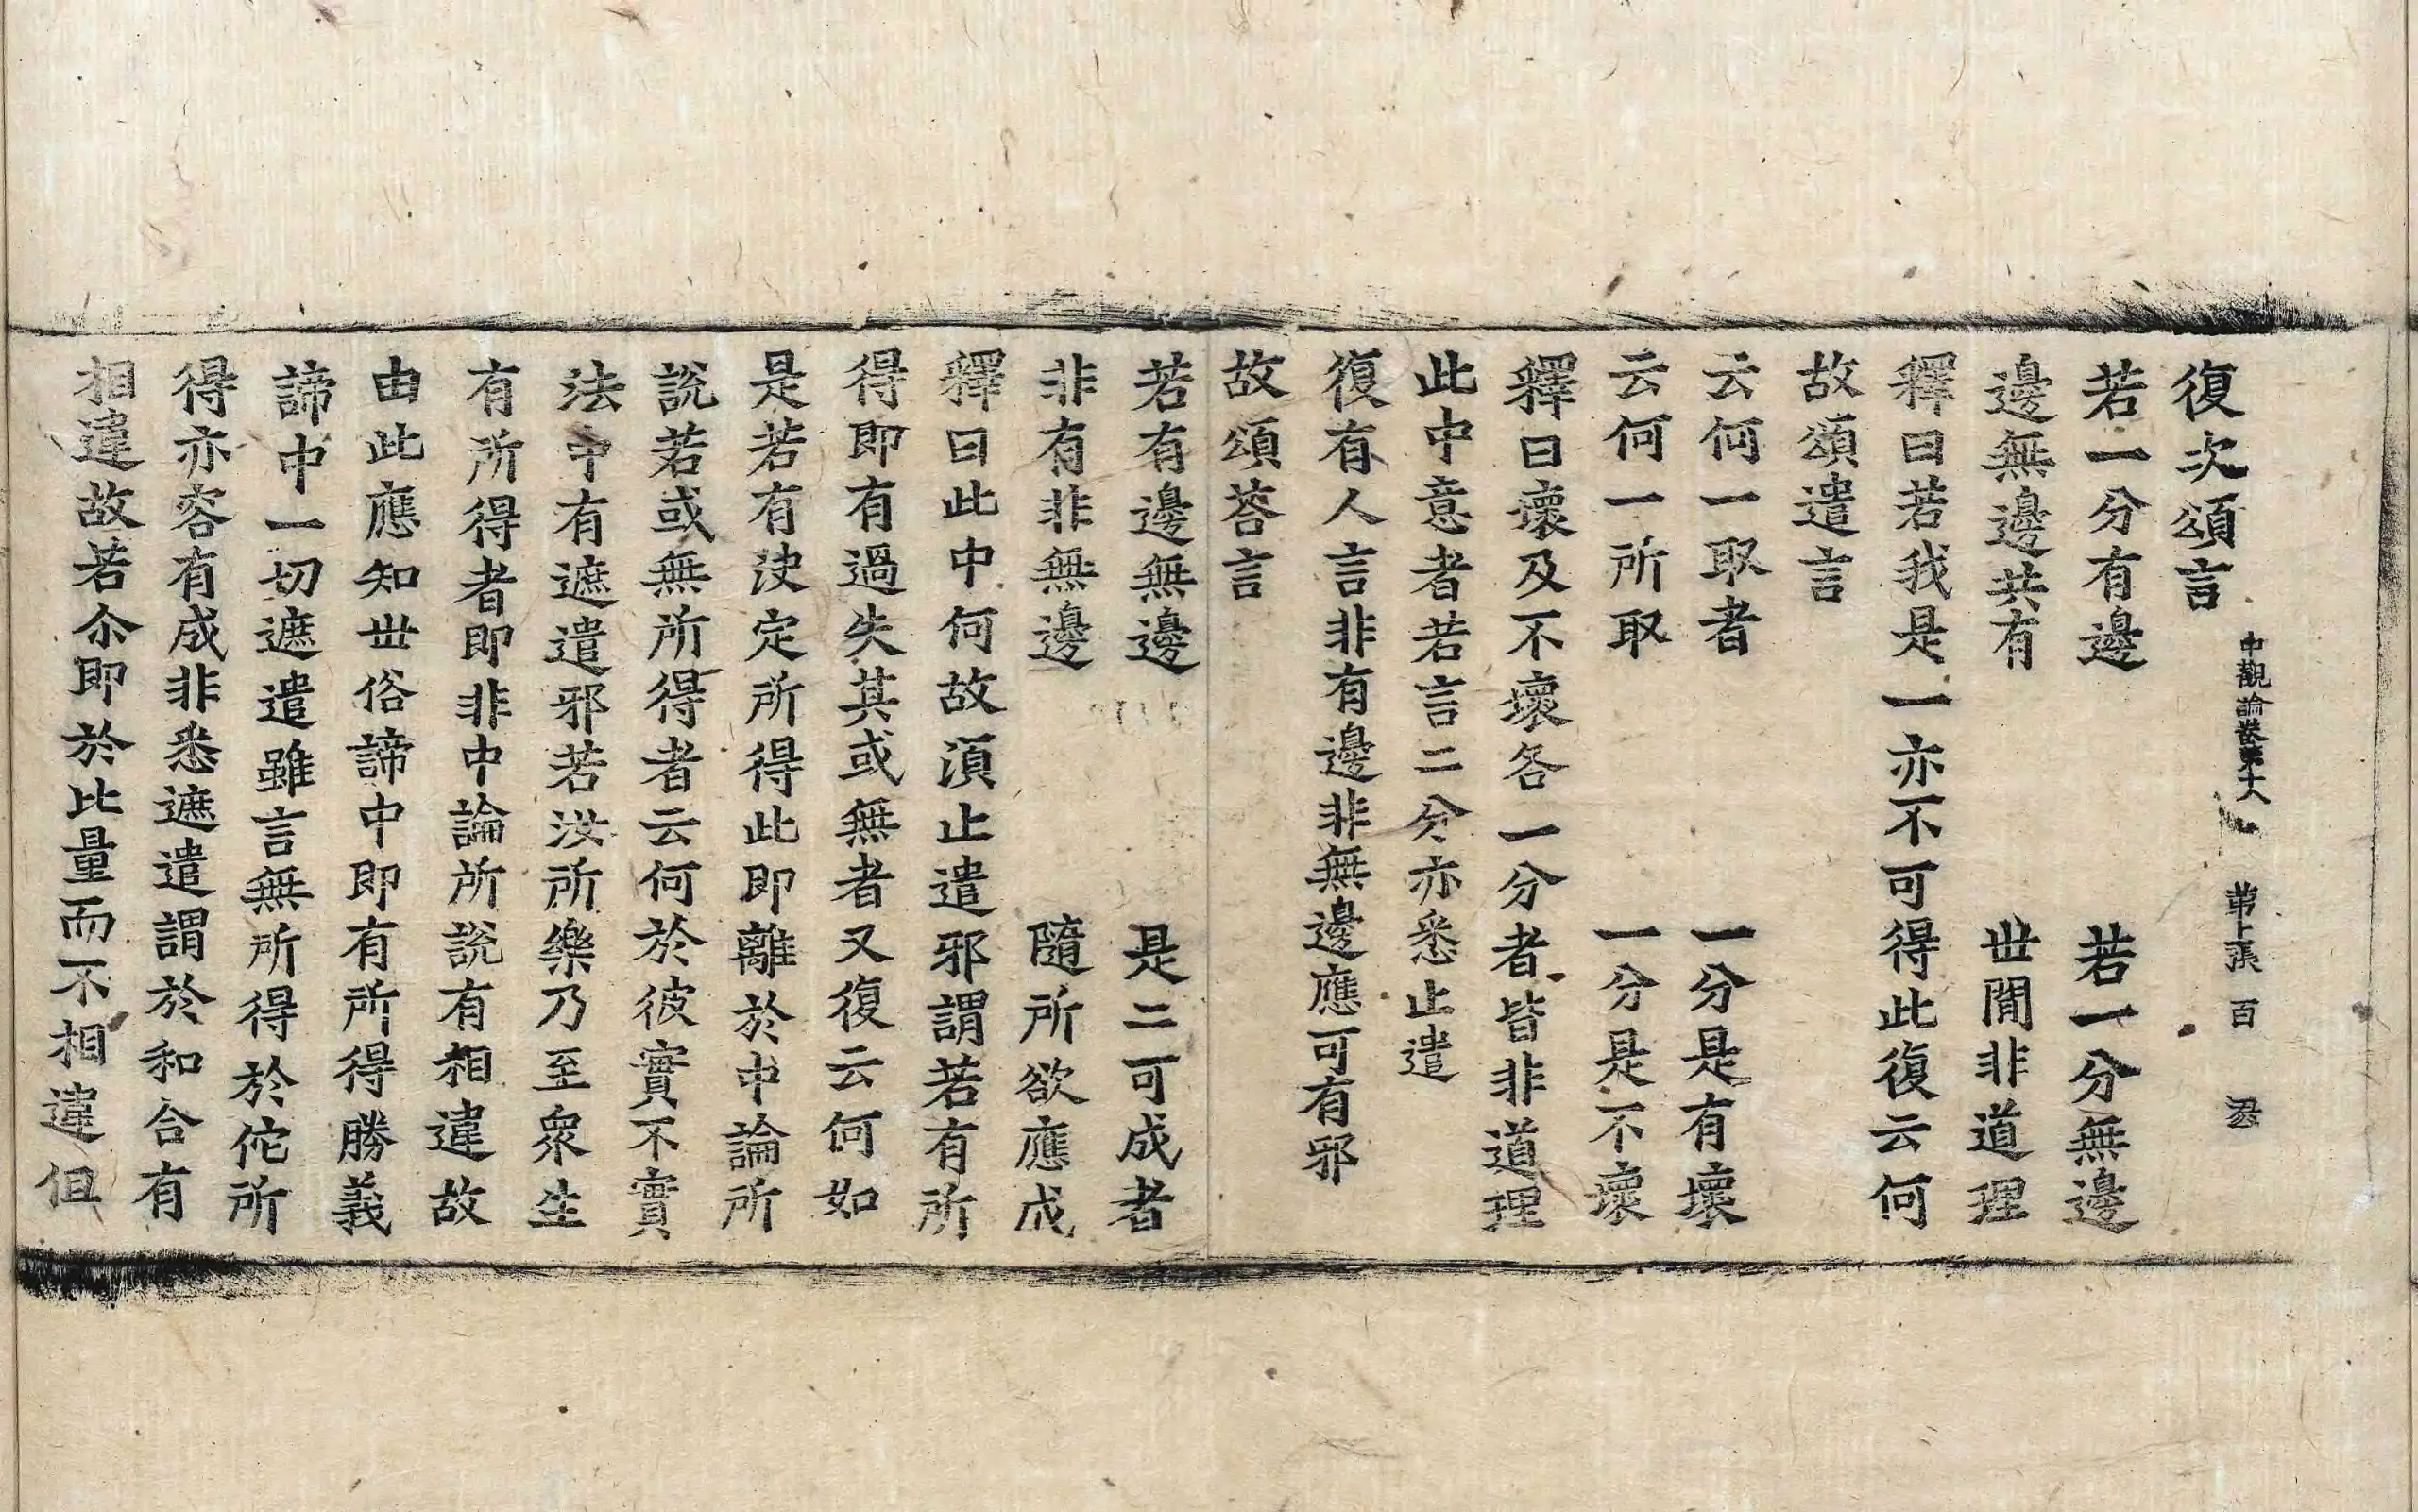 復次頌言
中觀論卷第十八 第上張 百
若一分有邊 若一分無邊
邊無邊共有 世間非道理
釋曰若我是一亦不可得此復云何
故頌遣言
云何一取者 一分是有壞
云何一所取 一分是不壞
釋曰壞及不壞各一分者皆非道理
此中意者若言二分亦悉止遣
復有人言非有邊非無邊應可有邪
故頌荅言
若有邊無邊 是二可成者
非有非無邊 隨所欲應成
釋曰此中何故湏止遣邪謂若有所
得即有過失其或無者又復云何如
是若有決定所得此即離於中論所
說若或無所得者云何於彼實不實
法中有遮遣邪若汝所樂乃至衆生
有所得者即非中論所說有相違故
由此應知丗俗諦中即有所得勝義
諦中一切遮遣雖言無所得於佗所
得亦容有成非悉遮遣謂於和合有
相違故若尒即於比量而不相違但